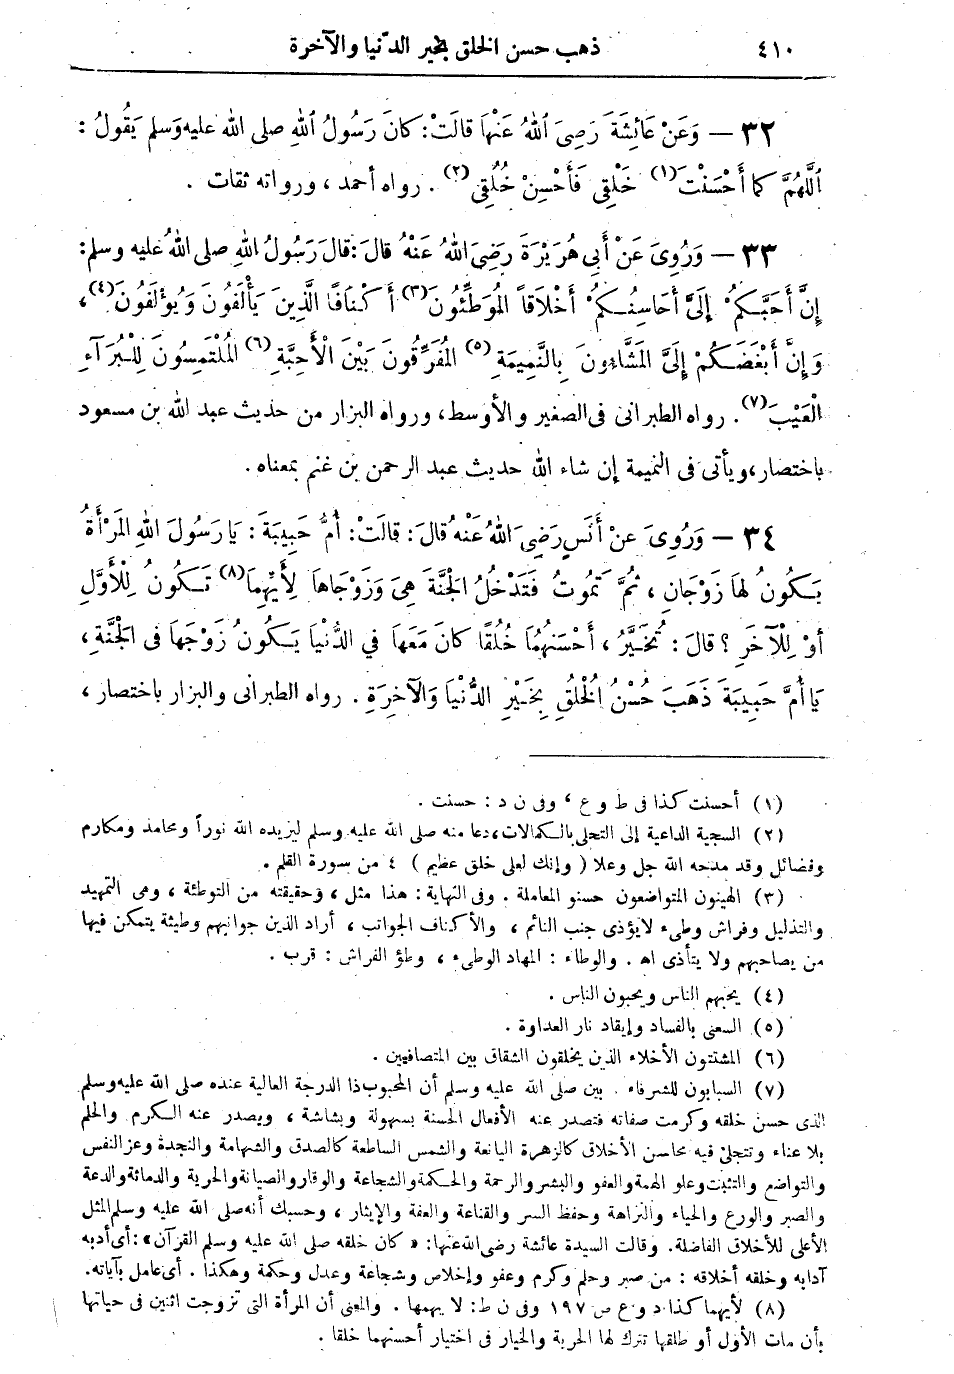 ٤١٠ ذهب حسن الخلق بخير الدّنيا والآخرة
٣٢ — وَعَنْ عَائِشَةَ رَضِىَ اللهُ عَنْهَا قالَتْ: كانَ رَسُولُ اللهِ صلى الله عليه وَسلم يَقُولُ :
اَللّٰهُمَّ كَمَا أَحْسَنْتَ(١) خَلْقِى فَأَحْسِنْ خُلُقِى(٢) . رواه أحمد ، ورواته ثقات .
٣٣ — وَرُوِىَ عَنْ أَبِى هُرَيْرَةَ رَضِىَ اللهُ عَنْهُ قالَ: قالَ رَسُولُ اللهِ صلى اللهُ عليه وسلم:
إِنَّ أَحَبَّكُمْ إِلَىَّ أَحَاسِنُكُمْ أَخْلَاقاً الْمُوَطَّئُونَ(٣) أَكْنَافًا الَّذِينَ يَأْلَفُونَ وَيُؤْلَفُونَ(٤)،
وَإِنَّ أَبْغَضَكُمْ إِلَىَّ الْمَشَّاءُونَ بِالنَّمِيمَةِ(٥) الْمُفَرِّقُونَ بَيْنَ الْأَحِبَّةِ(٦) الْمُلْتَمِسُونَ لِلْبُرَآءِ
الْعَيْبَ(٧). رواه الطبرانى فى الصغير والأوسط، ورواه البزار من حديث عبد الله بن مسعود
باختصار، ويأتى فى النميمة إن شاء الله حديث عبد الرحمن بن غنم بمعناه .
٣٤ — وَرُوِىَ عنْ أَنَسٍ رَضِىَ اللهُ عَنْهُ قالَ: قالَتْ: أُمُّ حَبِيبَةَ : يَا رَسُولَ اللهِ الْمَرْأَةُ
يَكُونُ لهَا زَوْجَانِ ، ثُمَّ تَمُوتُ فَتَدْخُلُ الْجَنَّةَ هِىَ وَزَوْجَاهَا لِأَيِّهِمَا(٨) تَكُونُ لِلْأَوَّلِ
أَوْ لِلْآخَرِ ؟ قالَ : تُخَيَّرُ ، أَحْسَنَهُمَا خُلُقًا كانَ مَعَهَا فِي الدُّنْيَا يَكُونُ زَوْجَهَا فى الْجَنَّةِ ،
يَا أُمَّ حَبِيبَةَ ذَهَبَ حُسْنُ الْخُلُقِ بِخَيْرِ الدُّنْيَا وَالْآخِرَةِ . رواه الطبرانى والبزار باختصار ،
(١) أحسنت كذا فى ط و ع ، وفى ن د : حسنت .
(٢) السجية الداعية إلى التحلى بالكمالات، دعا منه صلى الله عليه وسلم ليزيده الله نوراً ومحامد ومكارم
وفضائل وقد مدحه الله جل وعلا ( وإنك لعلى خلق عظيم ) ٤ من سورة القلم .
(٣) الهينون المتواضعون حسنو المعاملة . وفى النهاية : هذا مثل ، وحقيقته من التوطئة ، وهى التمهيد
والتذليل وفراش وطىء لايؤذى جنب النائم ، والأكناف الجوانب ، أراد الذين جوانبهم وطيئة يتمكن فيها
من يصاحبهم ولا يتأذى اهـ . والوطاء : المهاد الوطىء ، وطؤ الفراش : قرب .
(٤) يحبهم الناس ويحبون الناس .
(٥) السعى بالفساد وإيقاد نار العداوة .
(٦) المشتتون الأخلاء الذين يخلقون الشقاق بين المتصافيين .
(٧) السبابون للشرفاء . بين صلى الله عليه وسلم أن المحبوب ذا الدرجة العالية عنده صلى الله عليه وسلم
الذى حسن خلقه وكرمت صفاته فتصدر عنه الأفعال الحسنة بسهولة وبشاشة ، ويصدر عنه الكرم والحلم
بلا عناء وتتجلى فيه محاسن الأخلاق كالزهرة اليانعة والشمس الساطعة كالصدق والشهامة والنجدة وعز النفس
والتواضع والتثبت وعلو الهمة والعفو والبشر والرحمة والحكمة والشجاعة والوقار والصيانة والحرية والدماثة والدعة
والصبر والورع والحياء والنزاهة وحفظ السر والقناعة والعفة والإيثار ، وحسبك أنه صلى الله عليه وسلم المثل
الأعلى للأخلاق الفاضلة. وقالت السيدة عائشة رضى الله عنها: « كان خلقه صلى الله عليه وسلم القرآن »: أى أدبه
آدابه وخلقه أخلاقه : من صبر وحلم وكرم وعفو وإخلاص وشجاعة وعدل وحكمة وهكذا . أى عامل بآياته.
(٨) لأيهما كذا د و ع ص ١٩٧ وفى ن ط: لا يهمها . والمعنى أن المرأة التى تزوجت اثنين فى حياتها
بأن مات الأول أو طلقها تترك لها الحرية والخيار فى اختيار أحسنهما خلقا .